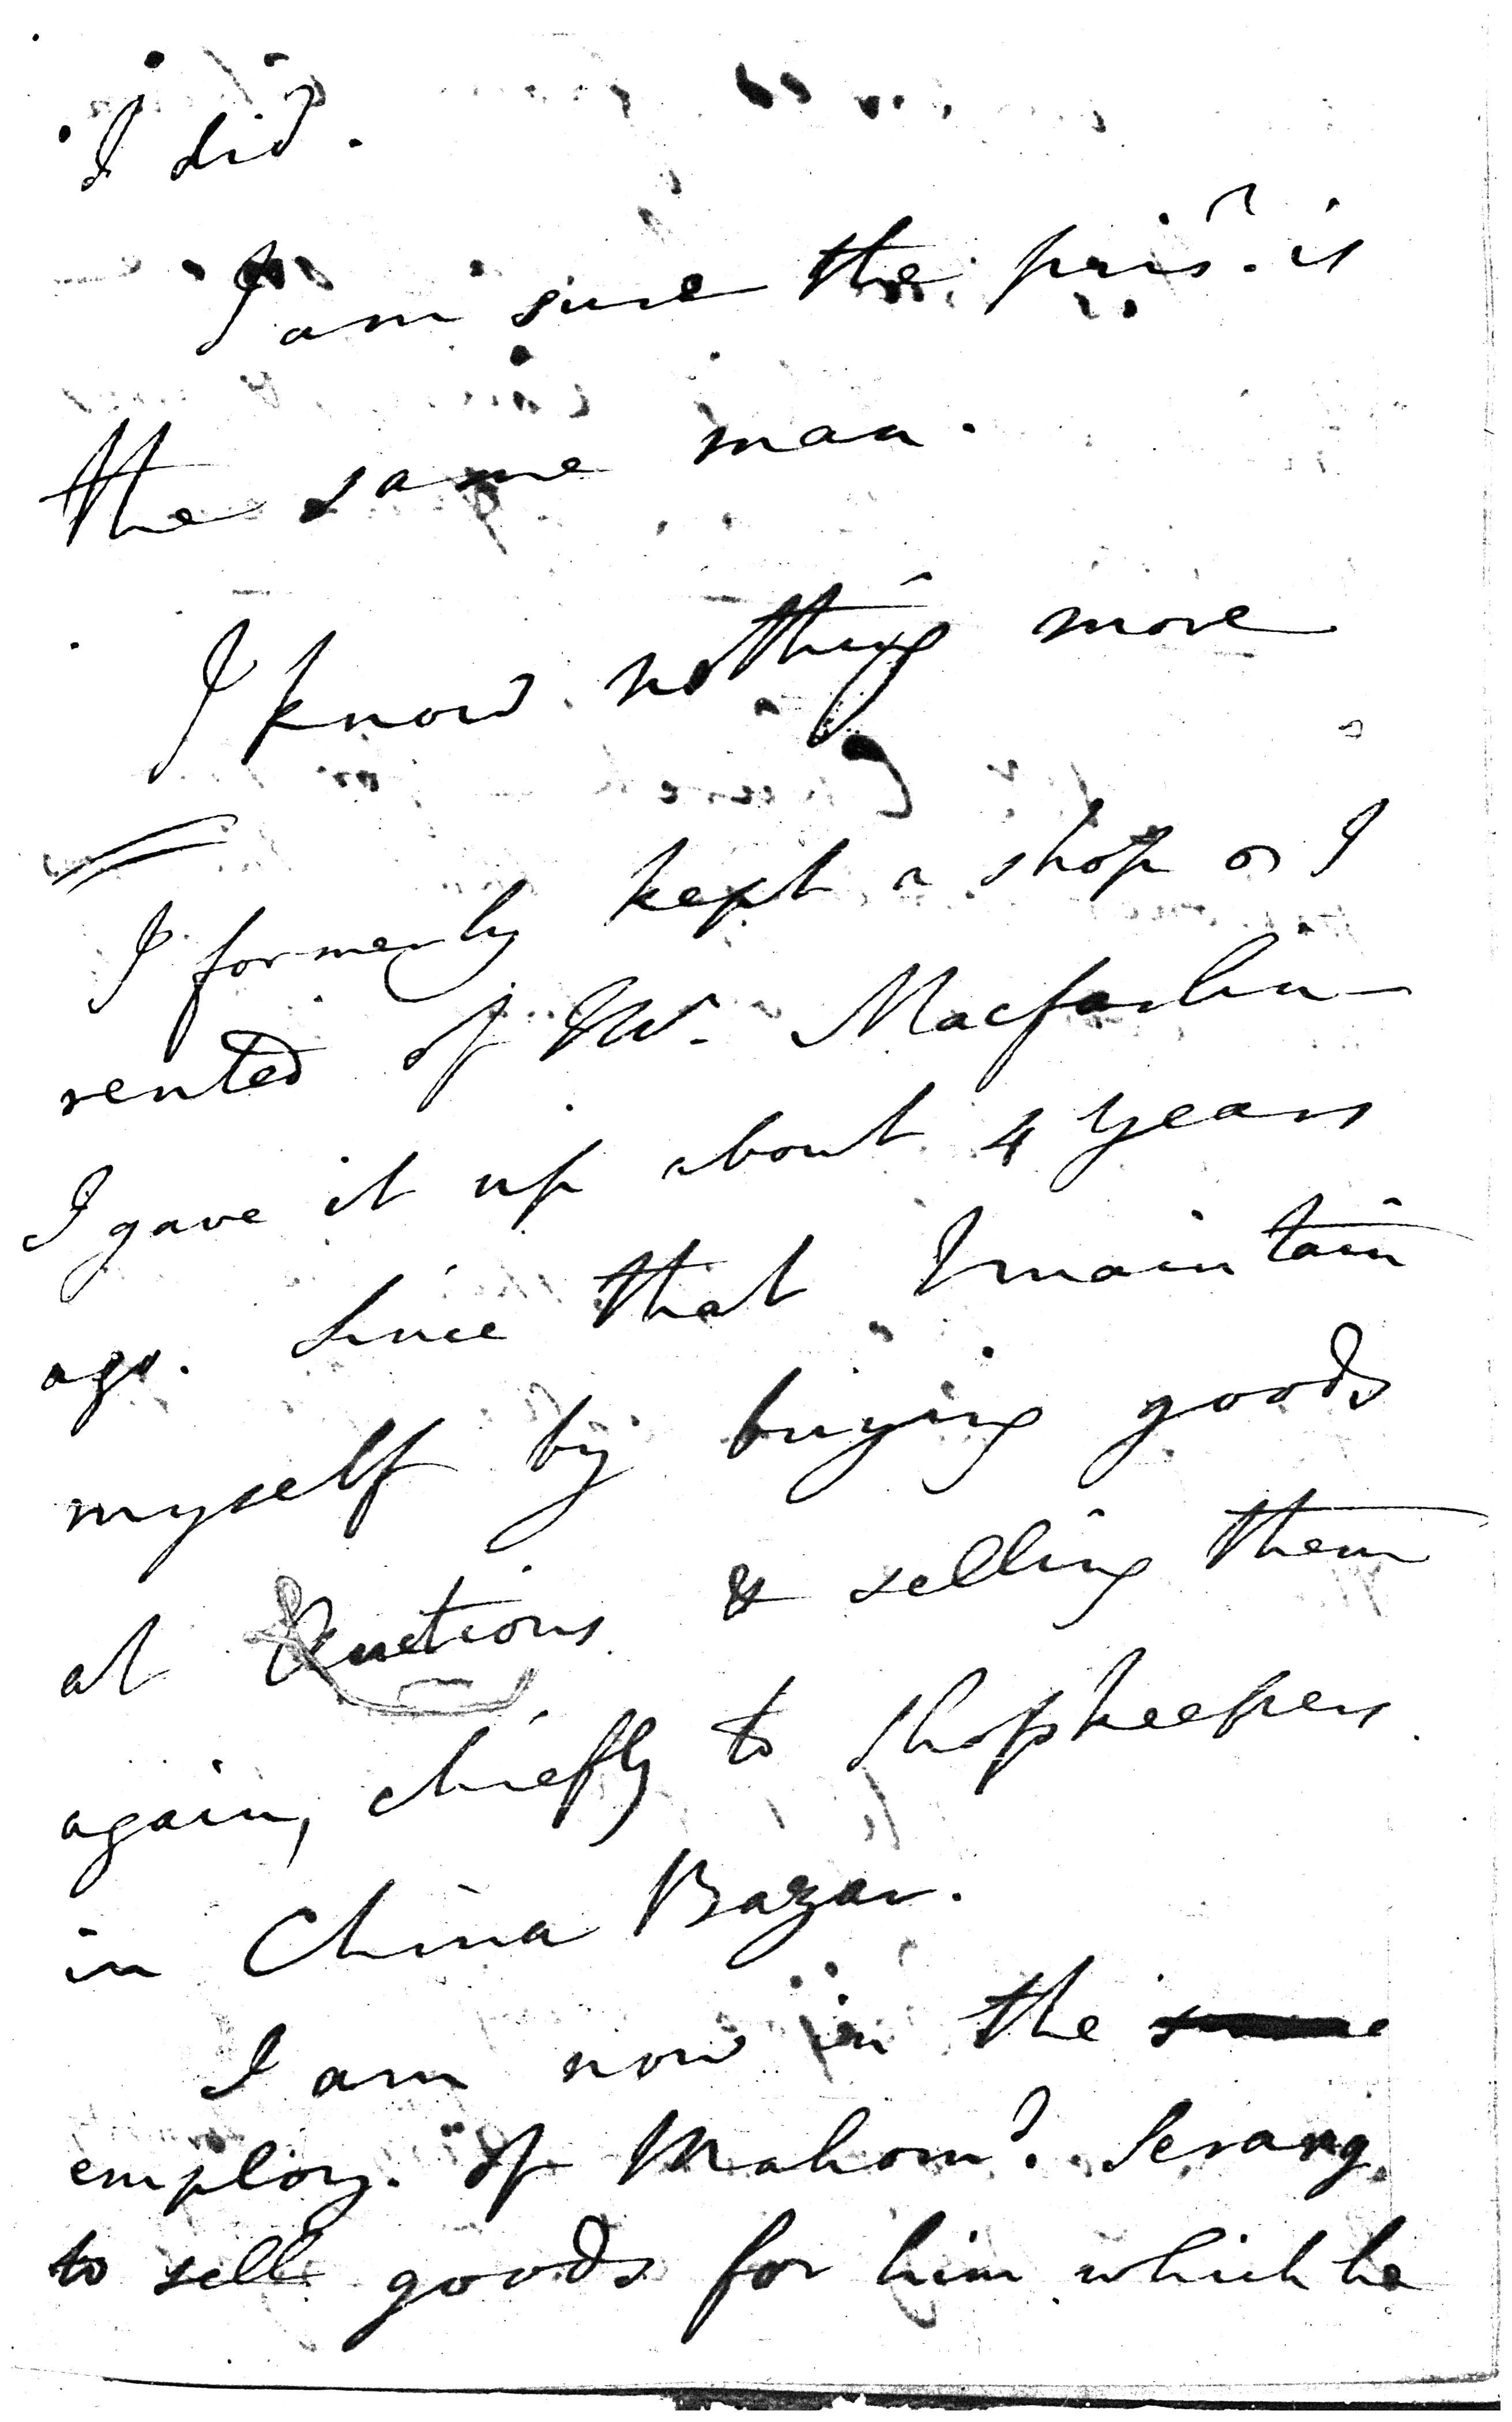 I did.
I am sure the prisr. is
the same man.
I know nothing more
I formerly kept a shop I
rented of Mr. Macfarlan
I gave it up about 4 years
ago. Since that I maintain
myself by buying goods
at Auctions & selling them
again, chiefly to shopkeepers
in China Bazar.
I am now in the same
employ. of Mahomd. Serang
to sell goods for him which he